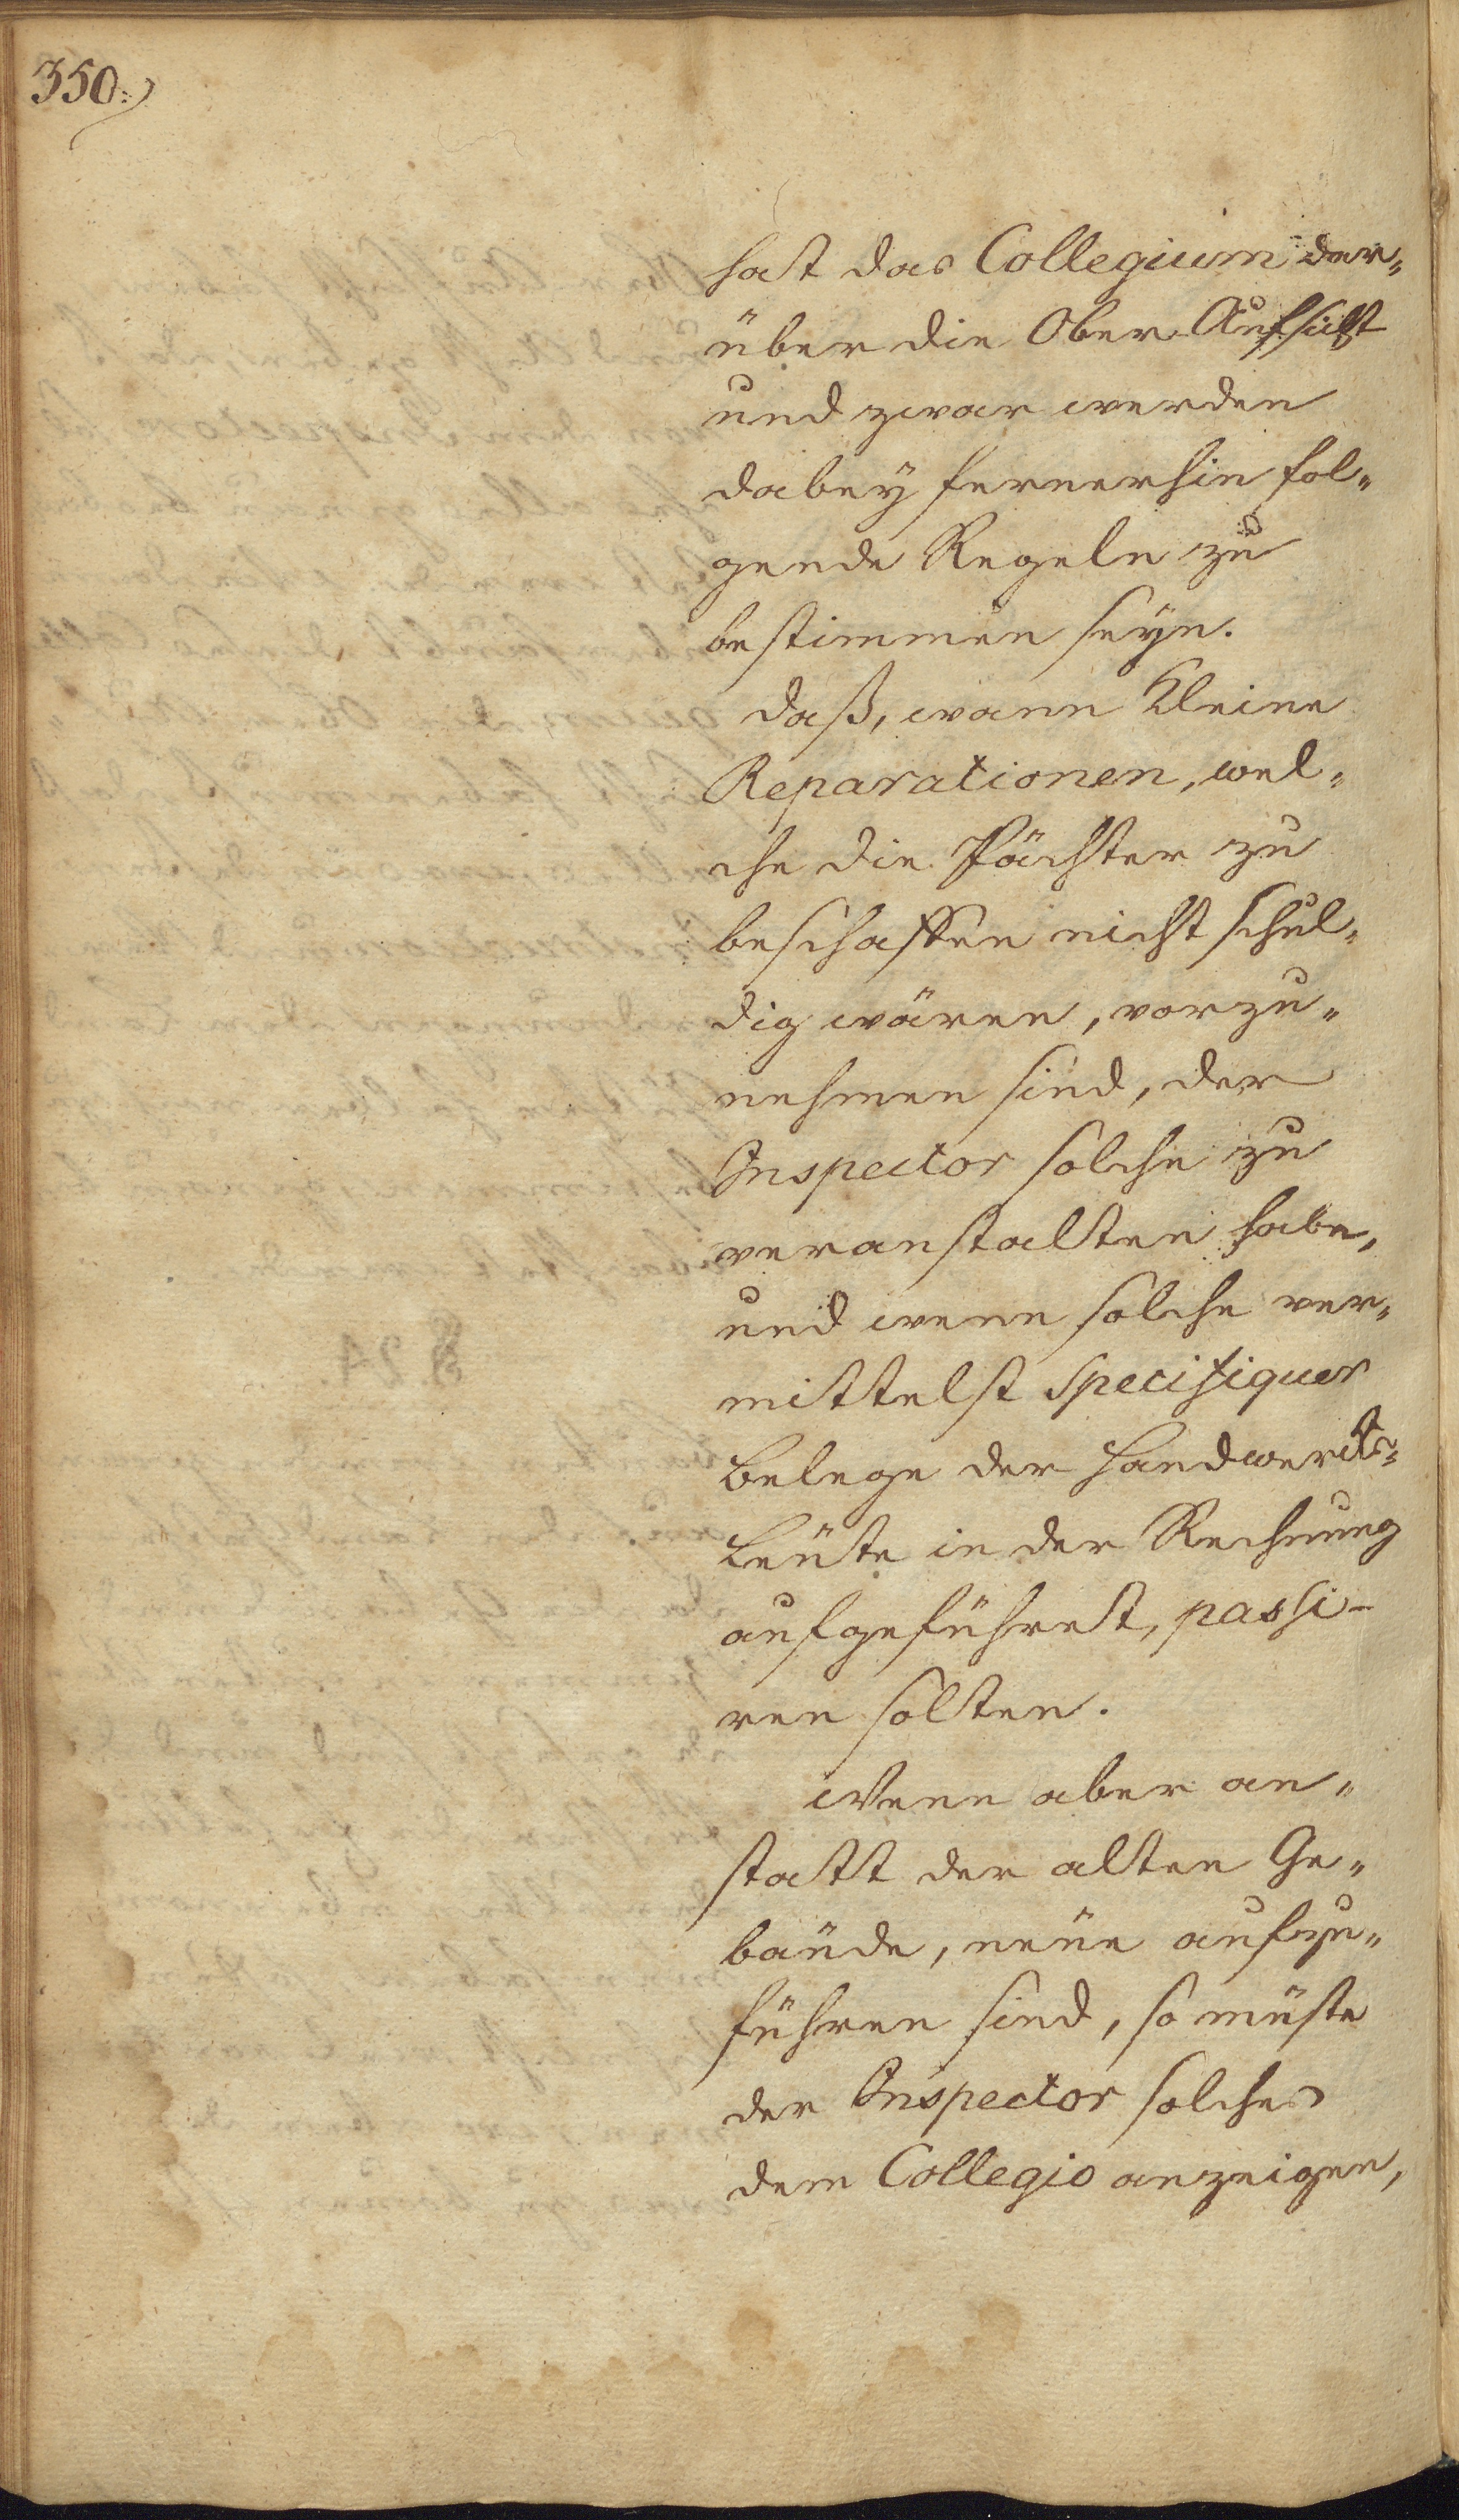 350.
hat das Collegium dar„
über die Ober Aufsicht
und zwar werden
dabey fernerhin fol„
gende Regeln zu
bestimmen seyn.
daß, wann kleine
Reparationen, wel„
che die Pächter zu
beschaffen nicht schul„
dig wären, vorzu„
nehmen sind, der
Inspector solche zu
veranstalten habe,
und wenn solche ver„
mittelst Specifiquer
Belege der Handwercks„
Leüte in der Rechnung
aufgeführet, passi-
ren solten.
Wenn aber an„
statt der alten Ge„
bäude, neüe aufzu„
führen sind, so müste
der Inspector solches
dem Collegio anzeigen,